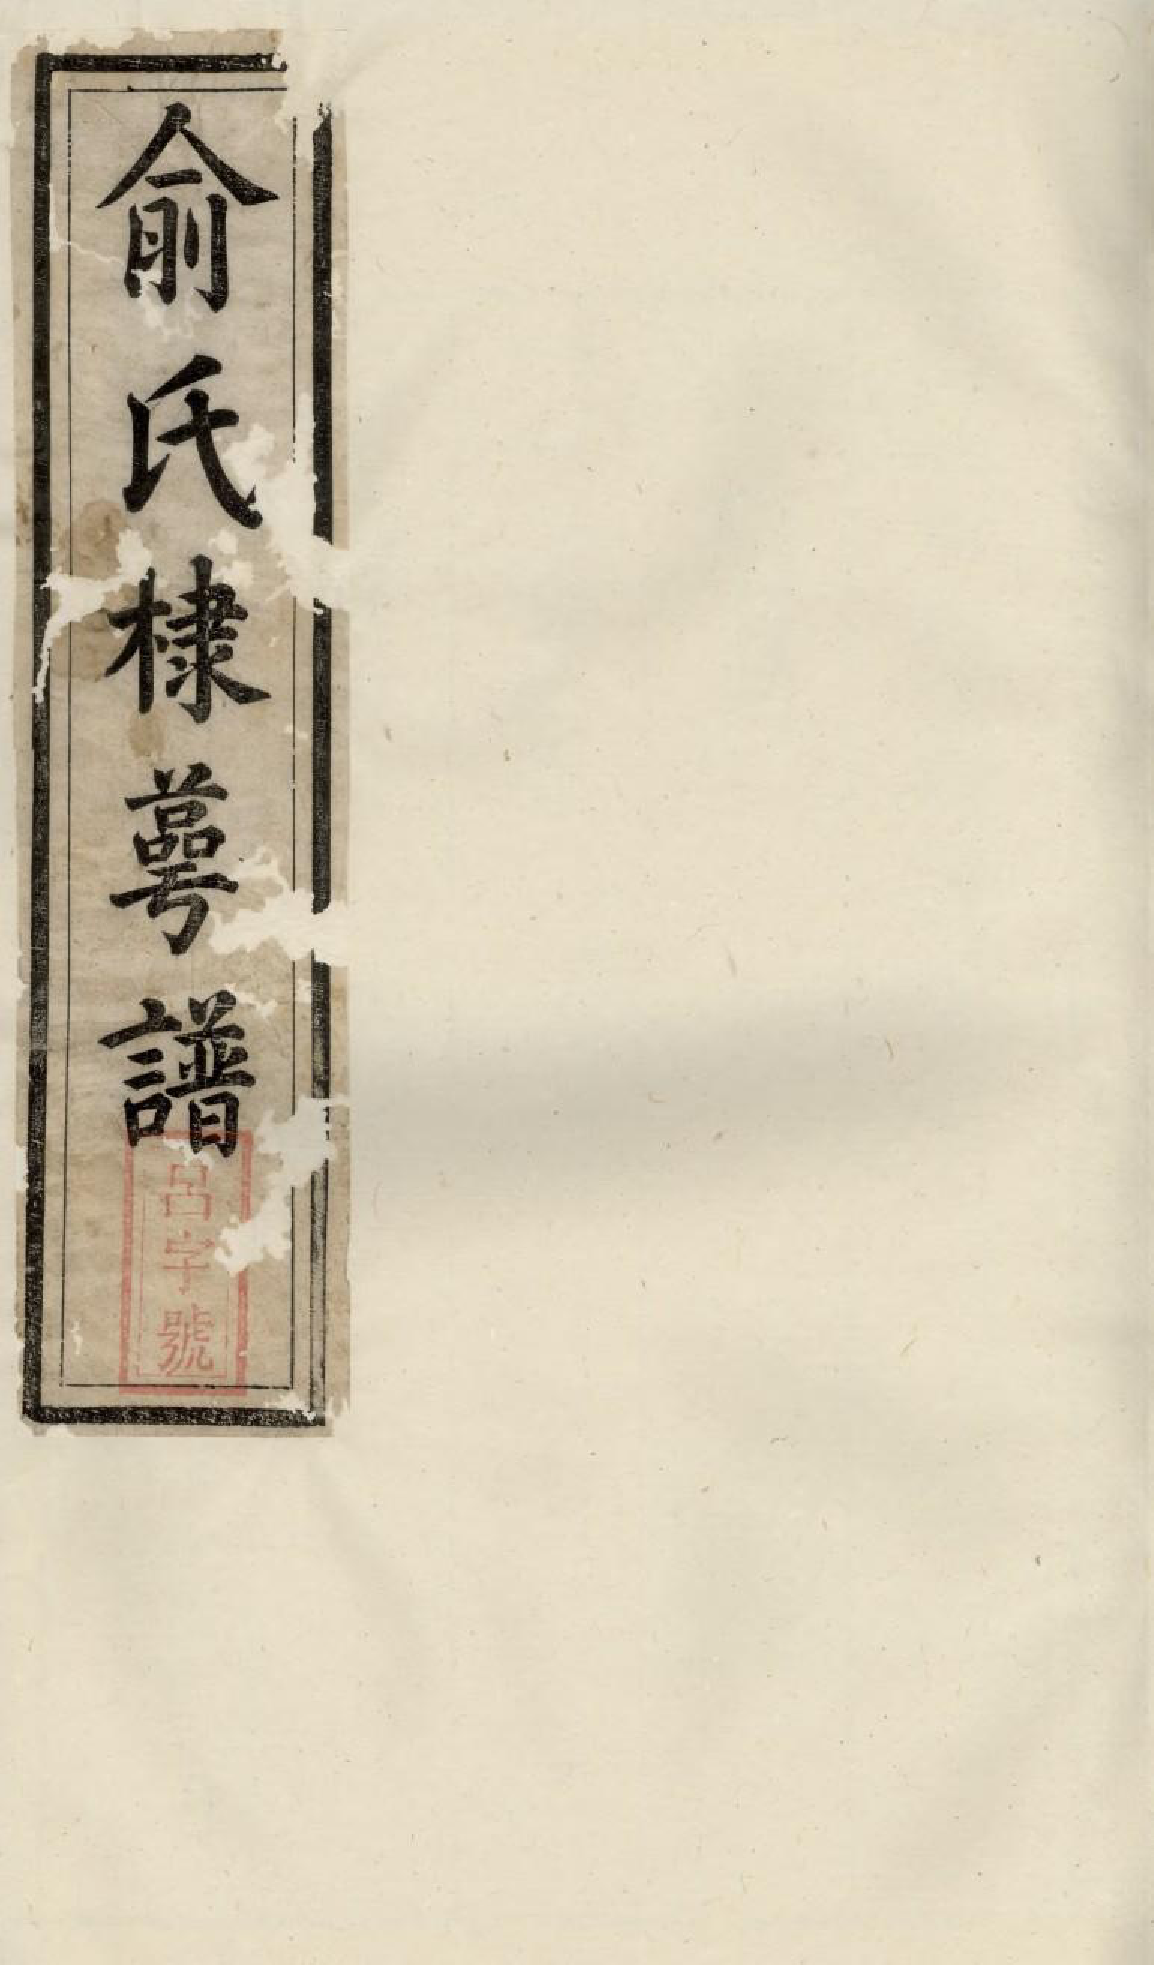 俞氏棣萼譜
呂字號